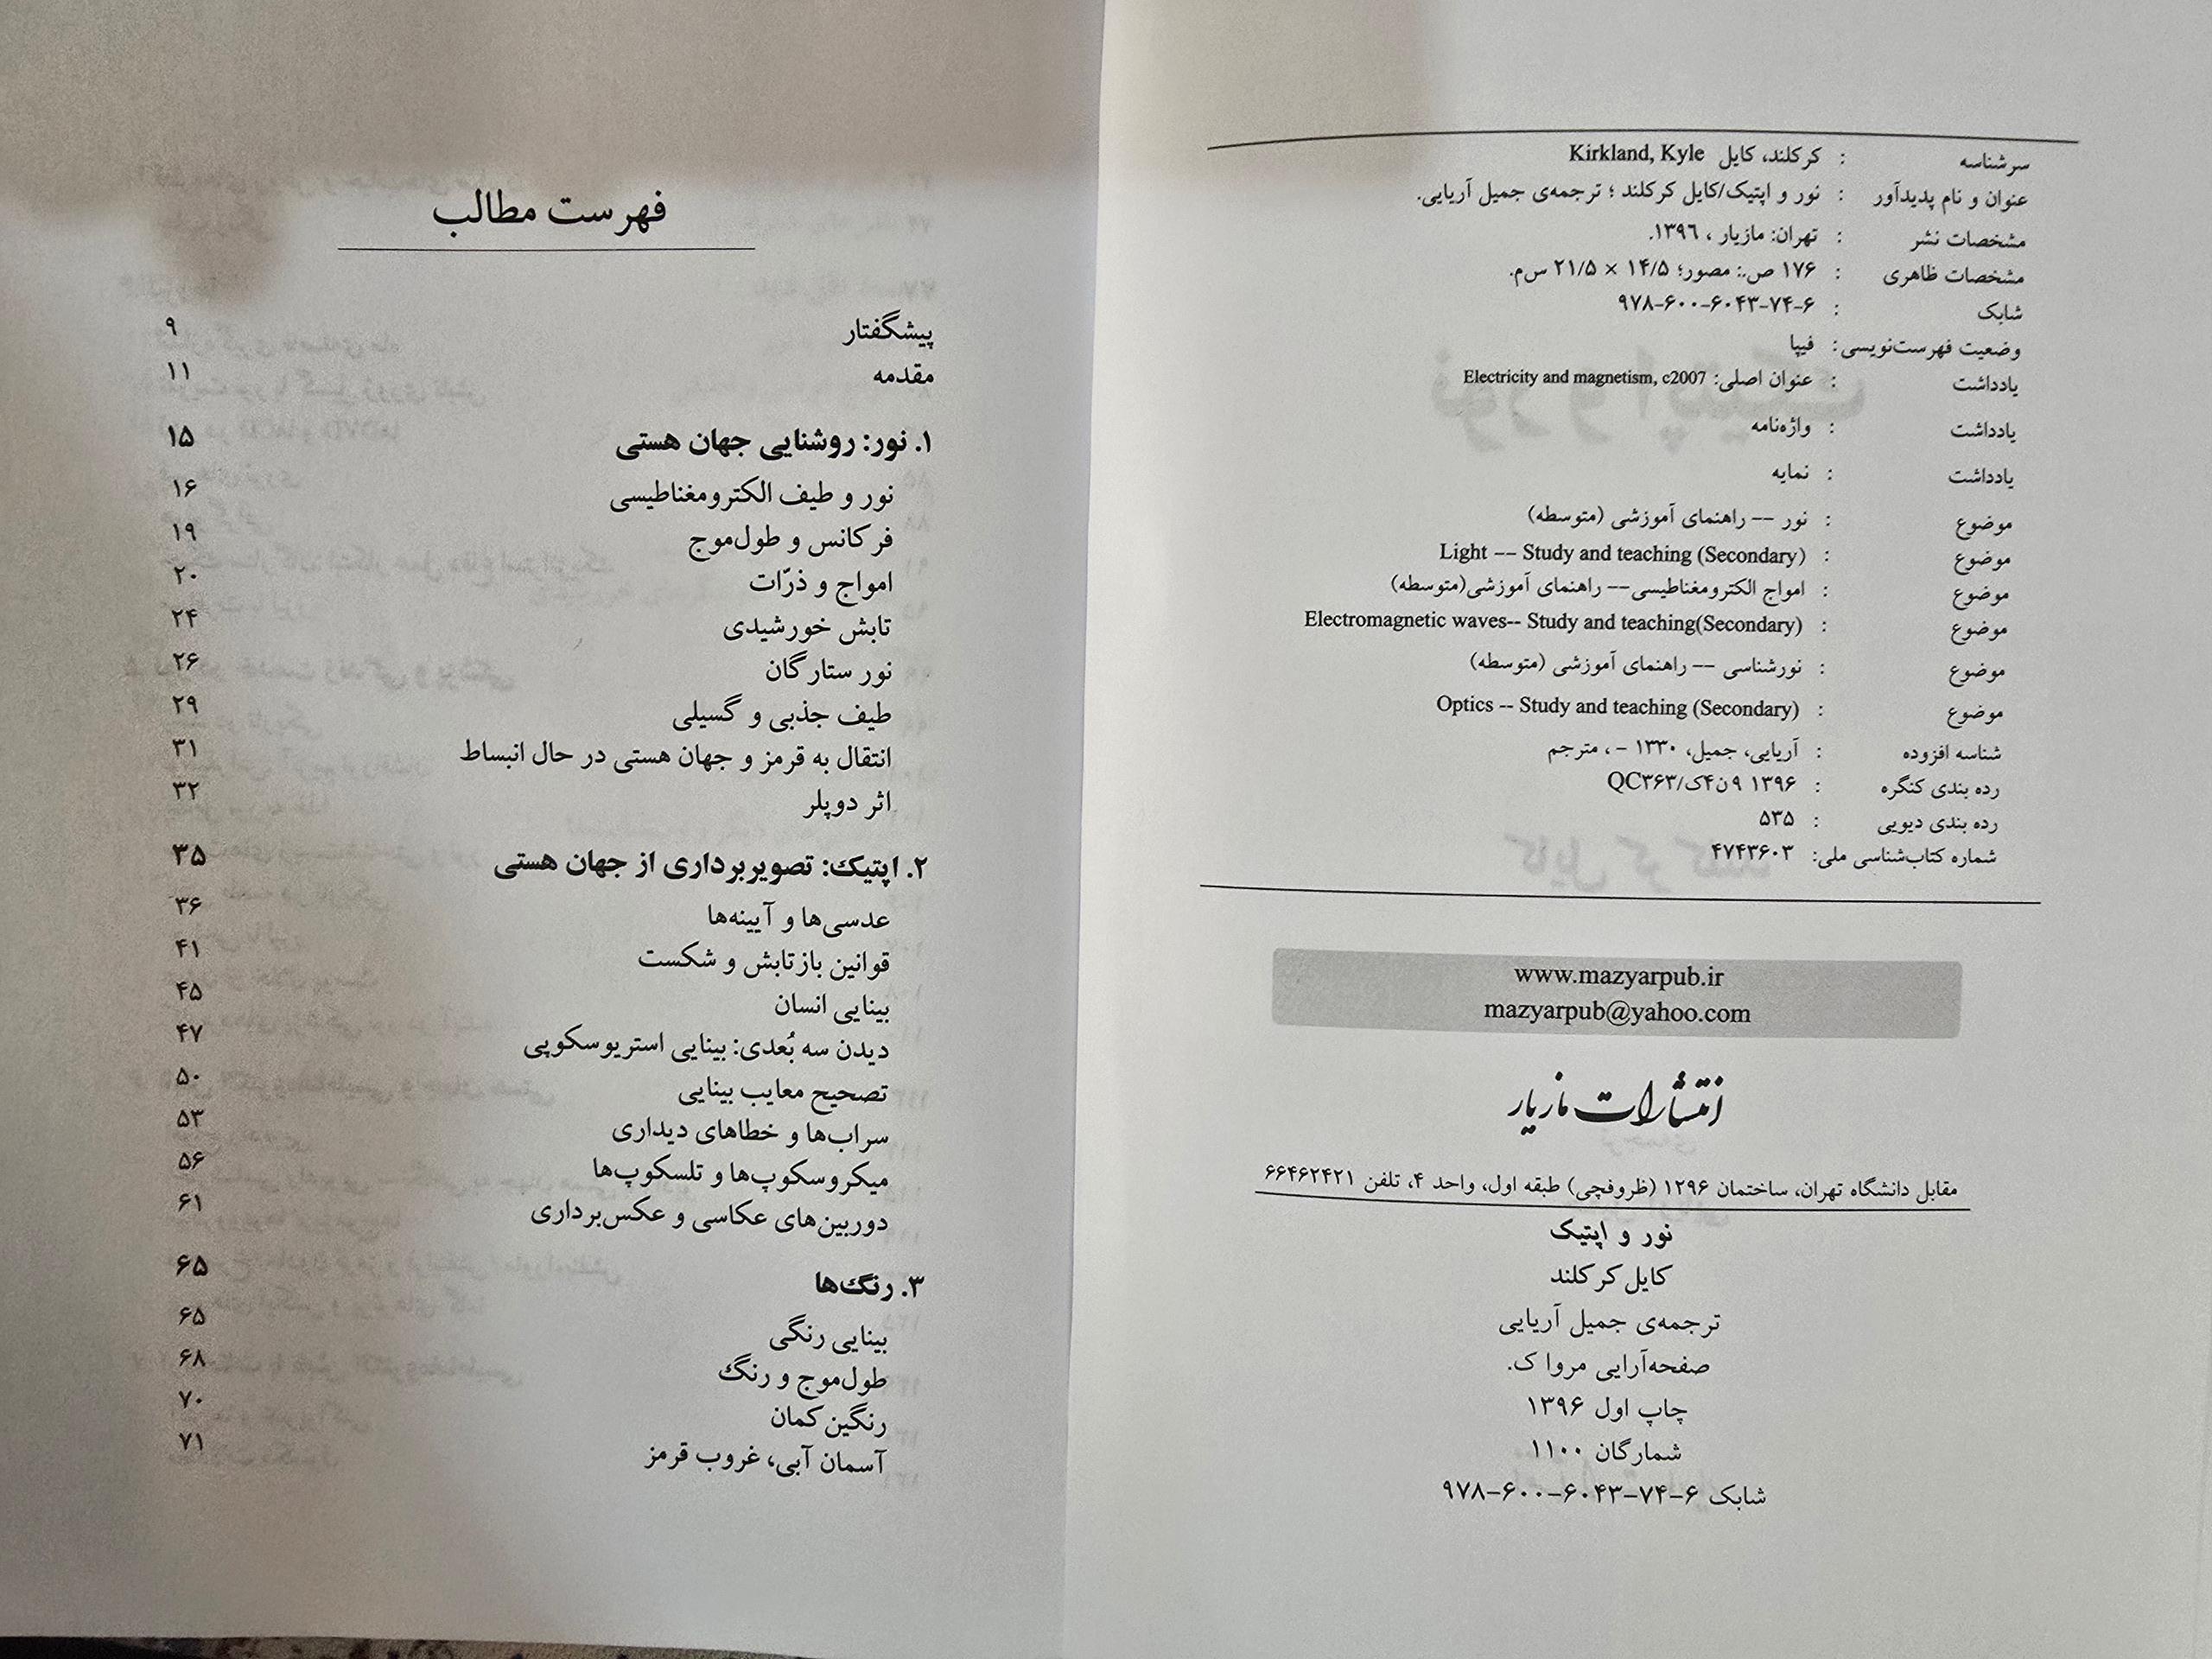 سرشناسه : کرکلند، کایل Kirkland, Kyle
عنوان و نام پدیدآور : نور و اپتیک/کایل کرکلند ؛ ترجمه‌ی جمیل آریایی.
مشخصات نشر : تهران: مازیار ، ۱۳۹۶.
مشخصات ظاهری : ۱۷۶ ص.: مصور؛ ۱۴/۵ × ۲۱/۵ س‌م.
شابک : ۹۷۸-۶۰۰-۶۰۴۳-۷۴-۶
وضعیت فهرست‌نویسی: فیپا
یادداشت : عنوان اصلی: Electricity and magnetism, c2007
یادداشت : واژه‌نامه
یادداشت : نمایه
موضوع : نور -- راهنمای آموزشی (متوسطه)
موضوع : Light -- Study and teaching (Secondary)
موضوع : امواج الکترومغناطیسی-- راهنمای آموزشی(متوسطه)
موضوع : Electromagnetic waves-- Study and teaching(Secondary)
موضوع : نورشناسی -- راهنمای آموزشی (متوسطه)
موضوع : Optics -- Study and teaching (Secondary)
شناسه افزوده : آریایی، جمیل، ۱۳۳۰ - ، مترجم
رده بندی کنگره : ۱۳۹۶ ۹ن۴ک/QC۳۶۳
رده بندی دیویی : ۵۳۵
شماره کتاب‌شناسی ملی: ۴۷۴۳۶۰۳
www.mazyarpub.ir
mazyarpub@yahoo.com
انتشارات مازیار
مقابل دانشگاه تهران، ساختمان ۱۲۹۶ (ظروفچی) طبقه اول، واحد ۴، تلفن ۶۶۴۶۲۴۲۱
نور و اپتیک
کایل کرکلند
ترجمه‌ی جمیل آریایی
صفحه‌آرایی مروا ک.
چاپ اول ۱۳۹۶
شمارگان ۱۱۰۰
شابک ۹۷۸-۶۰۰-۶۰۴۳-۷۴-۶
فهرست مطالب
پیشگفتار ۹
مقدمه ۱۱
۱. نور: روشنایی جهان هستی ۱۵
نور و طیف الکترومغناطیسی ۱۶
فرکانس و طول‌موج ۱۹
امواج و ذرّات ۲۰
تابش خورشیدی ۲۴
نور ستارگان ۲۶
طیف جذبی و گسیلی ۲۹
انتقال به قرمز و جهان هستی در حال انبساط ۳۱
اثر دوپلر ۳۲
۲. اپتیک: تصویربرداری از جهان هستی ۳۵
عدسی‌ها و آیینه‌ها ۳۶
قوانین بازتابش و شکست ۴۱
بینایی انسان ۴۵
دیدن سه بُعدی: بینایی استریوسکوپی ۴۷
تصحیح معایب بینایی ۵۰
سراب‌ها و خطاهای دیداری ۵۳
میکروسکوپ‌ها و تلسکوپ‌ها ۵۶
دوربین‌های عکاسی و عکس‌برداری ۶۱
۳. رنگ‌ها ۶۵
بینایی رنگی ۶۵
طول‌موج و رنگ ۶۸
رنگین کمان ۷۰
آسمان آبی، غروب قرمز ۷۱